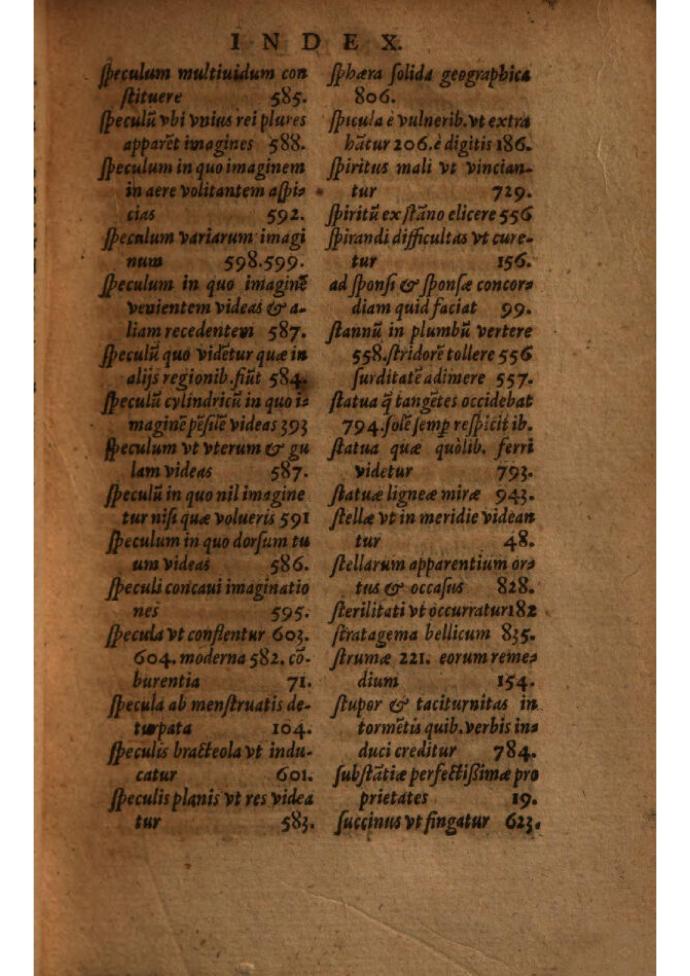 INDEX.
ſpeculum multiuidum con
ſtituere 585.
ſpeculũ vbi vnius rei plures
apparẽt imagines 588.
ſpeculum in quo imaginem
in aere volitantem aſpi-
cias 592.
ſpeculum variarum imagi
num 598.599.
ſpeculum in quo imaginẽ
venientem videas & a-
liam recedentem 587.
ſpeculũ quo vidẽtur quæ in
alijs regionib.fiũt 584.
ſpeculũ cylindricũ in quo i-
maginẽ pẽſilẽ videas 393
ſpeculum vt vterum & gu
lam videas 587.
ſpeculũ in quo nil imagine
tur niſi quæ volueris 591
ſpeculum in quo dorſum tu
um videas 586.
ſpeculi concaui imaginatio
nes 595.
ſpecula vt conflentur 603.
604. moderna 582. cõ-
burentia 71.
ſpecula ab menſtruatis de-
turpata 104.
ſpeculis bracteola vt indu-
catur 601.
ſpeculis planis vt res videa
tur 583.
ſphæra ſolida geographica
806.
ſpicula è vulnerib.vt extra
hãtur 206.è digitis 186.
ſpiritus mali vt vincian-
tur 729.
ſpiritũ ex ſtãno elicere 556
ſpirandi difficultas vt cure-
tur 156.
ad ſponſi & ſponſæ concor-
diam quid faciat 99.
ſtannũ in plumbũ vertere
558.ſtridorẽ tollere 556
ſurditatẽ adimere 557.
ſtatua q̃ tangẽtes occidebat
794.ſolẽ ſemꝑ reſpicit ib.
ſtatua quæ quòlib. ferri
videtur 793.
ſtatuæ ligneæ miræ 943.
ſtellæ vt in meridie videan
tur 48.
ſtellarum apparentium or-
tus & occaſus 828.
ſterilitati vt occurratur 182
ſtratagema bellicum 835.
ſtrumæ 221. eorum reme-
dium 154.
ſtupor & taciturnitas in
tormẽtis quib.verbis in-
duci creditur 784.
ſubſtãtiæ perfectißimæ pro
prietates 19.
ſuccinus vt fingatur 623.